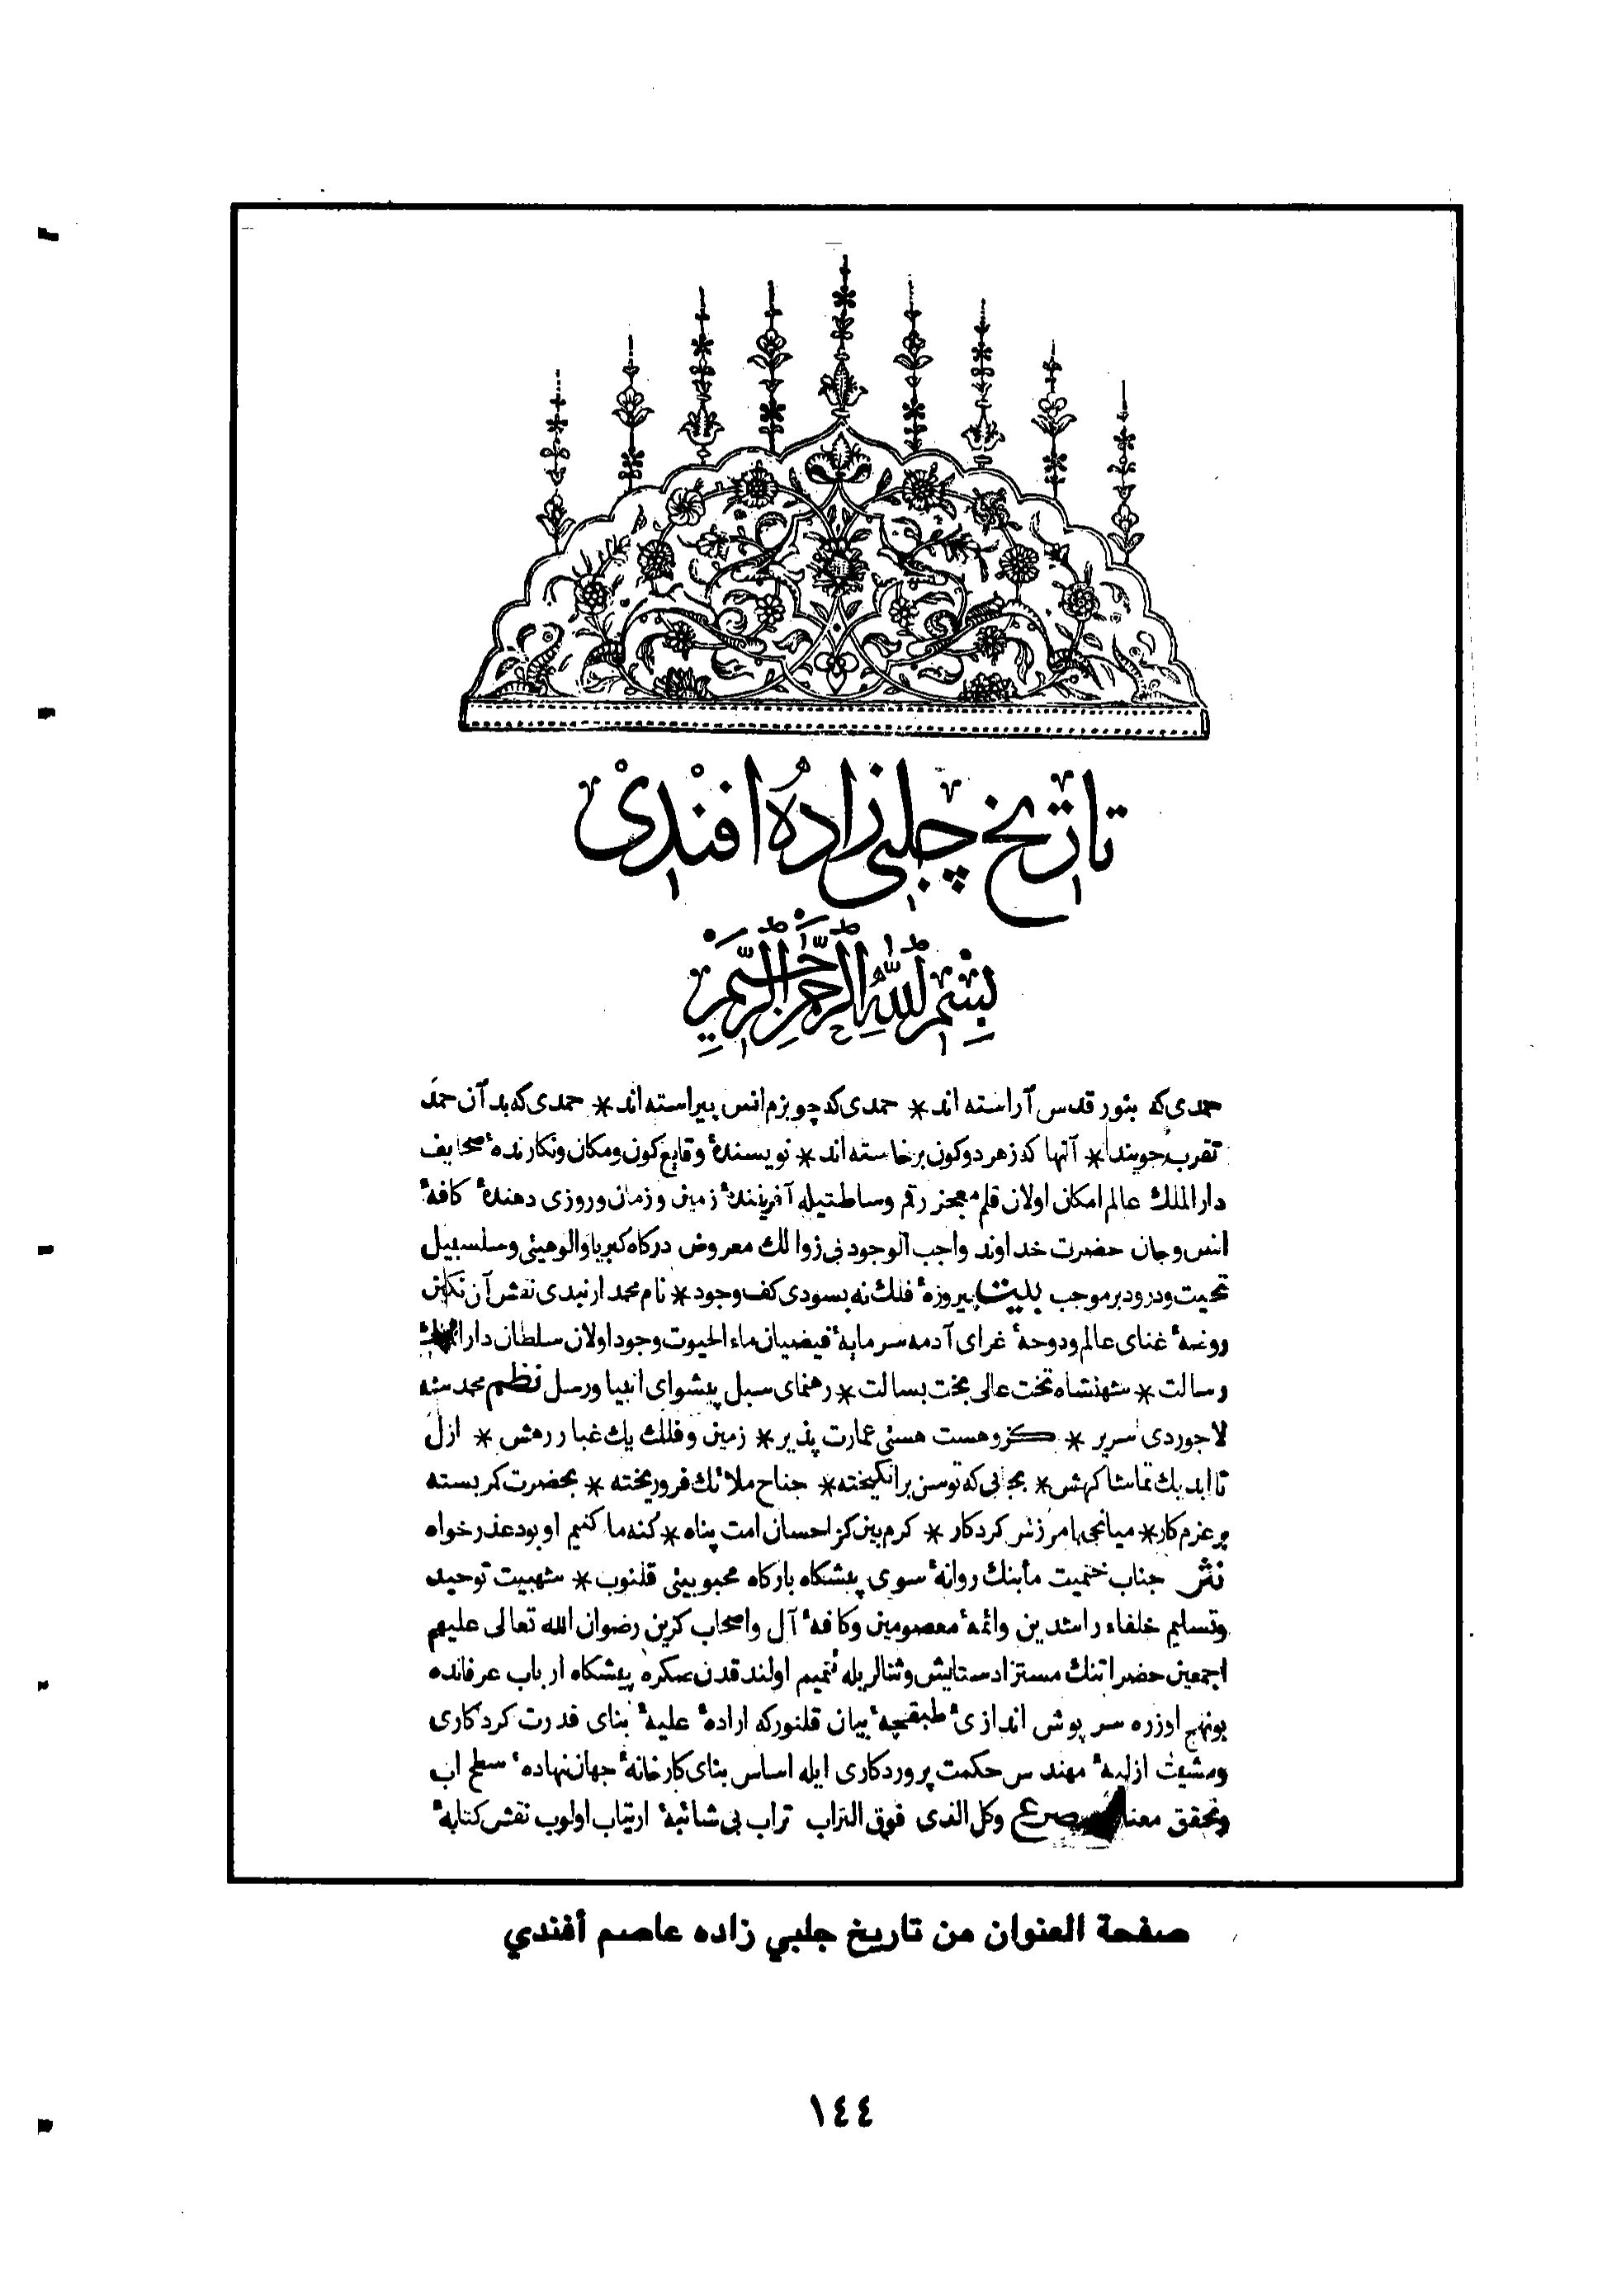 تاريخ چلبى زاده افندى
بسم الله الرحمن الرحيم
حمدى كه بنور قدس آراسته اند * حمدى كه چو بزم انس پيراسته اند * حمدى كه بد آن حمد
تقرب جويند * آنها كه زهر دو كون برخاسته اند * نويسندۀ وقايع كون ومكان ونكارندۀ صحايف
دار الملك عالم امكان اولان قلم معجز رقم وساطتيله آفرينندۀ زمين وزمان وروزى دهندۀ كافۀ
انس وجان حضرت خداوند واجب الوجود بى زوالك معروض دركاه كبريا والوهيتى وسلسبيل
تحيت ودرود برموجب بيت پيروزۀ فلك نه بسودى كف وجود * نام محمد ار نبدى نقش آن نكين
روضۀ غناى عالم ودوحۀ غراى آدمه سرمايۀ فيضيان ماء الحيوت وجود اولان سلطان دار
رسالت * شهنشاه تخت عالى بخت بسالت * رهنماى سبل پيشواى انبيا ورسل نظم محمد شه
لاجوردى سرير * كزو هست هستى عمارت پذير * زمين وفلك يك غبار رهش * ازل
تا ابد يك تماشا كهش * بجايى كه توسن برانكيخته * جناح ملائك فرو ريخته * بحضرت كمر بسته
بر عزم كار * ميانجى بامرزش كردكار * كرم بين كز احسان امت پناه * كنه ما كنيم او بود عذر خواه
نثر جناب ختميت مأبنك روانۀ سوى پيشكاه باركاه محبوبيتى قلنوب * شهبيت توحيد
وتسليم خلفاء راشدين وائمۀ معصومين وكافۀ آل واصحاب كزين رضوان الله تعالى عليهم
اجمعين حضراتنك مستزاد ستايش وثنالريله تتميم اولندقدن صكره پيشكاه ارباب عرفانده
بو نهج اوزره سر پوش اندازئ طبقچۀ بيان قلنور كه ارادۀ عليۀ بناى قدرت كردكارى
ومشيت ازليۀ مهندس حكمت پروردكارى ايله اساس بناى كارخانۀ جهان نهادۀ سطح اب
وتحقق معنا مصرع وكل الذى فوق التراب تراب بى شائبۀ ارتياب اولوب نقش كتابۀ
صفحة العنوان من تاريخ جلبي زاده عاصم أفندي
١٤٤